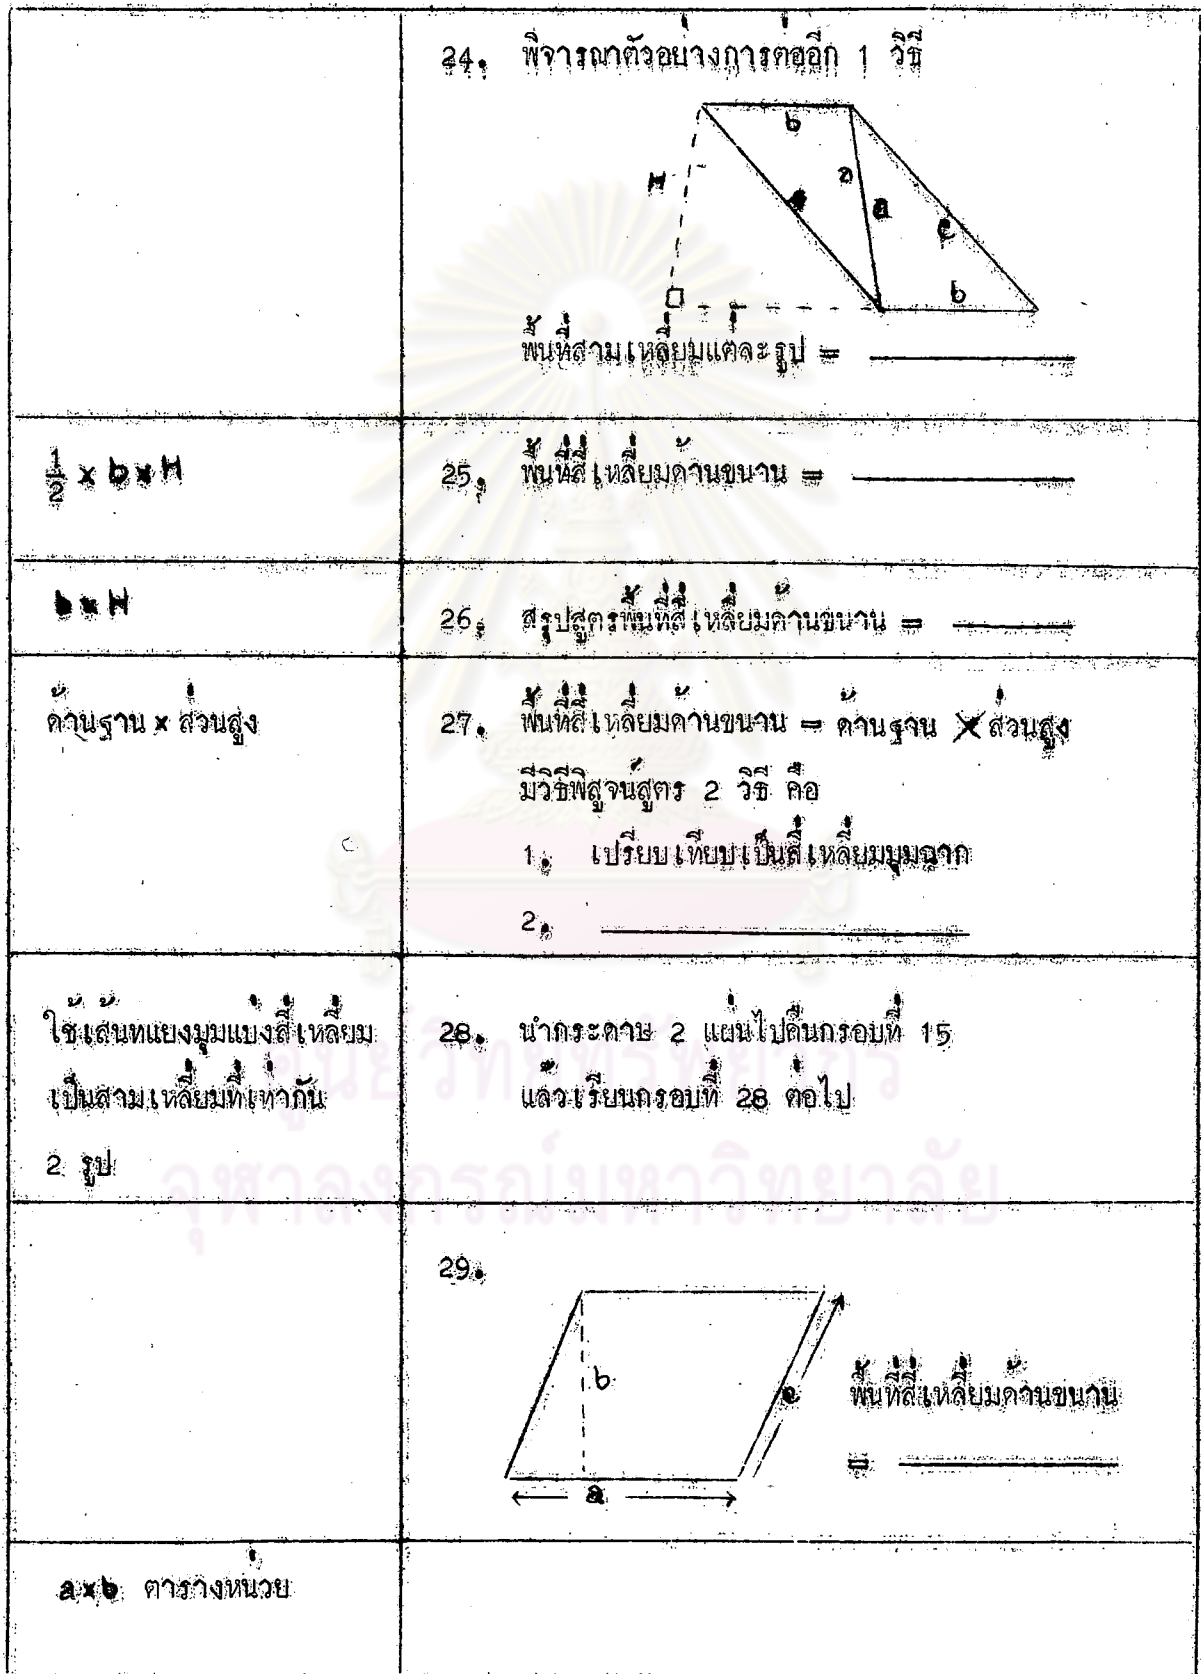 24. พิจารณาตัวอย่างการต่ออีก 1 วิธี
b
H
a
a
c
b
พื้นที่สามเหลี่ยมแต่ละรูป =
½ x b x H
25. พื้นที่สี่เหลี่ยมด้านขนาน =
b x H
26. สรุปสูตรพื้นที่สี่เหลี่ยมด้านขนาน =
ด้านฐาน x ส่วนสูง
27. พื้นที่สี่เหลี่ยมด้านขนาน = ด้านฐาน X ส่วนสูง
มีวิธีพิสูจน์สูตร 2 วิธี คือ
1. เปรียบเทียบเป็นสี่เหลี่ยมมุมฉาก
2.
ใช้เส้นทแยงมุมแบ่งสี่เหลี่ยม
เป็นสามเหลี่ยมที่เท่ากัน
2 รูป
28. นำกระดาษ 2 แผ่นไปคืนกรอบที่ 15
แล้วเรียนกรอบที่ 28 ต่อไป
ศูนย์วิทยทรัพยากร
จุฬาลงกรณ์มหาวิทยาลัย
29.
b
c
a
พื้นที่สี่เหลี่ยมด้านขนาน
=
a x b ตารางหน่วย